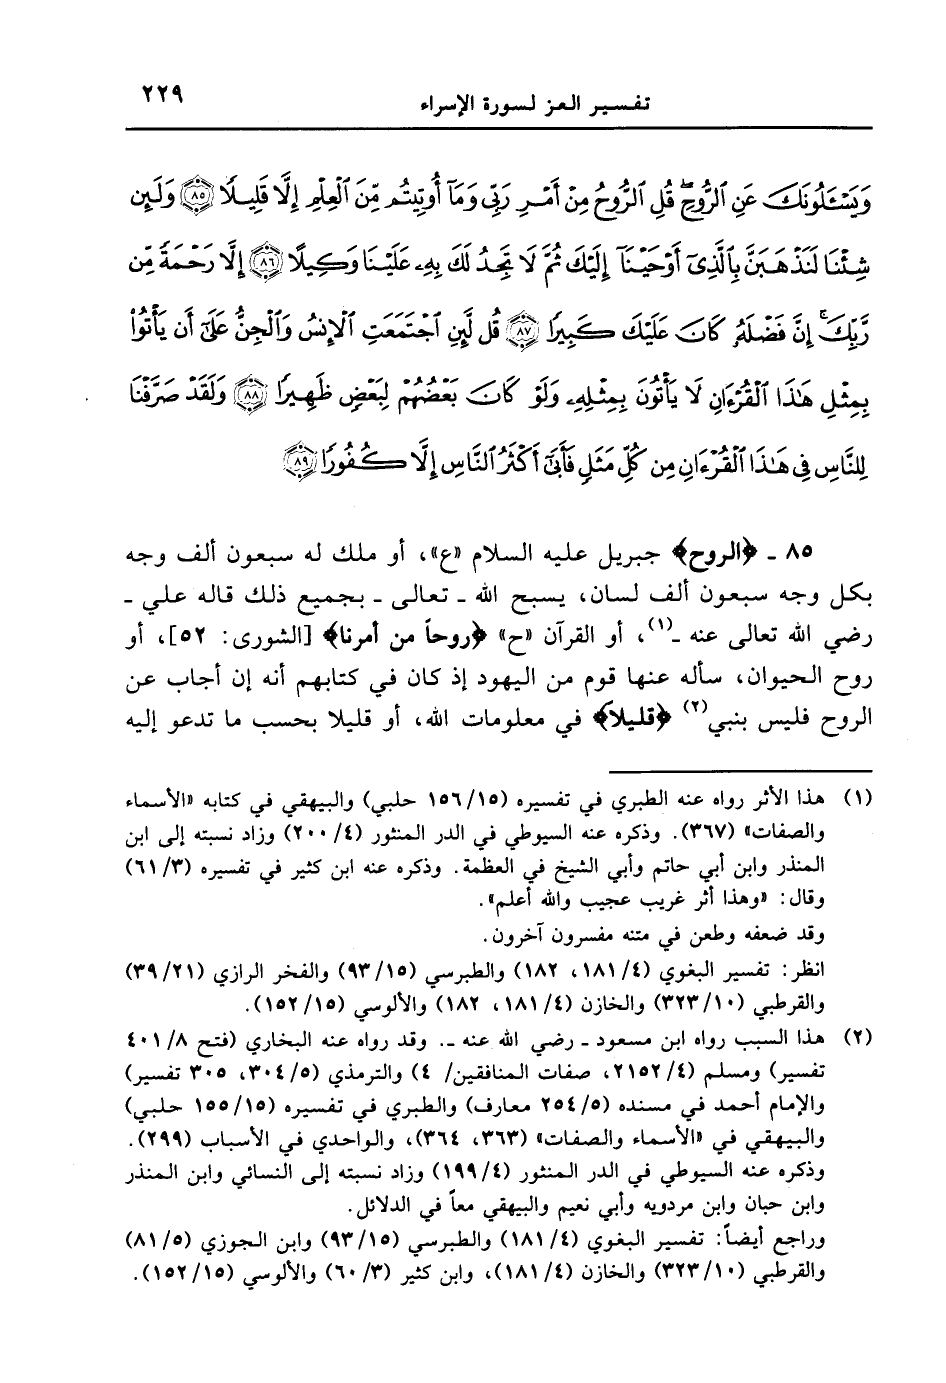 تفسير العز لسورة الإسراء ٢٢٩
وَيَسْـَٔلُونَكَ عَنِ ٱلرُّوحِ ۖ قُلِ ٱلرُّوحُ مِنْ أَمْرِ رَبِّى وَمَآ أُوتِيتُم مِّنَ ٱلْعِلْمِ إِلَّا قَلِيلًا ۝٨٥ وَلَئِن
شِئْنَا لَنَذْهَبَنَّ بِٱلَّذِىٓ أَوْحَيْنَآ إِلَيْكَ ثُمَّ لَا تَجِدُ لَكَ بِهِۦ عَلَيْنَا وَكِيلًا ۝٨٦ إِلَّا رَحْمَةً مِّن
رَّبِّكَ ۚ إِنَّ فَضْلَهُۥ كَانَ عَلَيْكَ كَبِيرًا ۝٨٧ قُل لَّئِنِ ٱجْتَمَعَتِ ٱلْإِنسُ وَٱلْجِنُّ عَلَىٰٓ أَن يَأْتُوا۟
بِمِثْلِ هَٰذَا ٱلْقُرْءَانِ لَا يَأْتُونَ بِمِثْلِهِۦ وَلَوْ كَانَ بَعْضُهُمْ لِبَعْضٍ ظَهِيرًا ۝٨٨ وَلَقَدْ صَرَّفْنَا
لِلنَّاسِ فِى هَٰذَا ٱلْقُرْءَانِ مِن كُلِّ مَثَلٍ فَأَبَىٰٓ أَكْثَرُ ٱلنَّاسِ إِلَّا كُفُورًا ۝٨٩
٨٥ ـ ﴿الروح﴾ جبريل عليه السلام «ع»، أو ملك له سبعون ألف وجه
بكل وجه سبعون ألف لسان، يسبح الله ـ تعالى ـ بجميع ذلك قاله علي ـ
رضي الله تعالى عنه ـ(١)، أو القرآن «ح» ﴿روحاً من أمرنا﴾ [الشورى: ٥٢]، أو
روح الحيوان، سأله عنها قوم من اليهود إذ كان في كتابهم أنه إن أجاب عن
الروح فليس بنبي(٢) ﴿قليلا﴾ في معلومات الله، أو قليلا بحسب ما تدعو إليه
(١) هذا الأثر رواه عنه الطبري في تفسيره (١٥/١٥٦ حلبي) والبيهقي في كتابه «الأسماء
والصفات» (٣٦٧). وذكره عنه السيوطي في الدر المنثور (٤/٢٠٠) وزاد نسبته إلى ابن
المنذر وابن أبي حاتم وأبي الشيخ في العظمة. وذكره عنه ابن كثير في تفسيره (٣/٦١)
وقال: «وهذا أثر غريب عجيب والله أعلم».
وقد ضعفه وطعن في متنه مفسرون آخرون.
انظر: تفسير البغوي (٤/١٨١، ١٨٢) والطبرسي (١٥/٩٣) والفخر الرازي (٢١/٣٩)
والقرطبي (١٠/٣٢٣) والخازن (٤/١٨١، ١٨٢) والألوسي (١٥/١٥٢).
(٢) هذا السبب رواه ابن مسعود ـ رضي الله عنه ـ. وقد رواه عنه البخاري (فتح ٨/٤٠١
تفسير) ومسلم (٤/٢١٥٢، صفات المنافقين/ ٤) والترمذي (٥/٣٠٤، ٣٠٥ تفسير)
والإمام أحمد في مسنده (٥/٢٥٤ معارف) والطبري في تفسيره (١٥/١٥٥ حلبي)
والبيهقي في «الأسماء والصفات» (٣٦٣، ٣٦٤)، والواحدي في الأسباب (٢٩٩).
وذكره عنه السيوطي في الدر المنثور (٤/١٩٩) وزاد نسبته إلى النسائي وابن المنذر
وابن حبان وابن مردويه وأبي نعيم والبيهقي معاً في الدلائل.
وراجع أيضاً: تفسير البغوي (٤/١٨١) والطبرسي (١٥/٩٣) وابن الجوزي (٥/٨١)
والقرطبي (١٠/٣٢٣) والخازن (٤/١٨١)، وابن كثير (٣/٦٠) والألوسي (١٥/١٥٢).